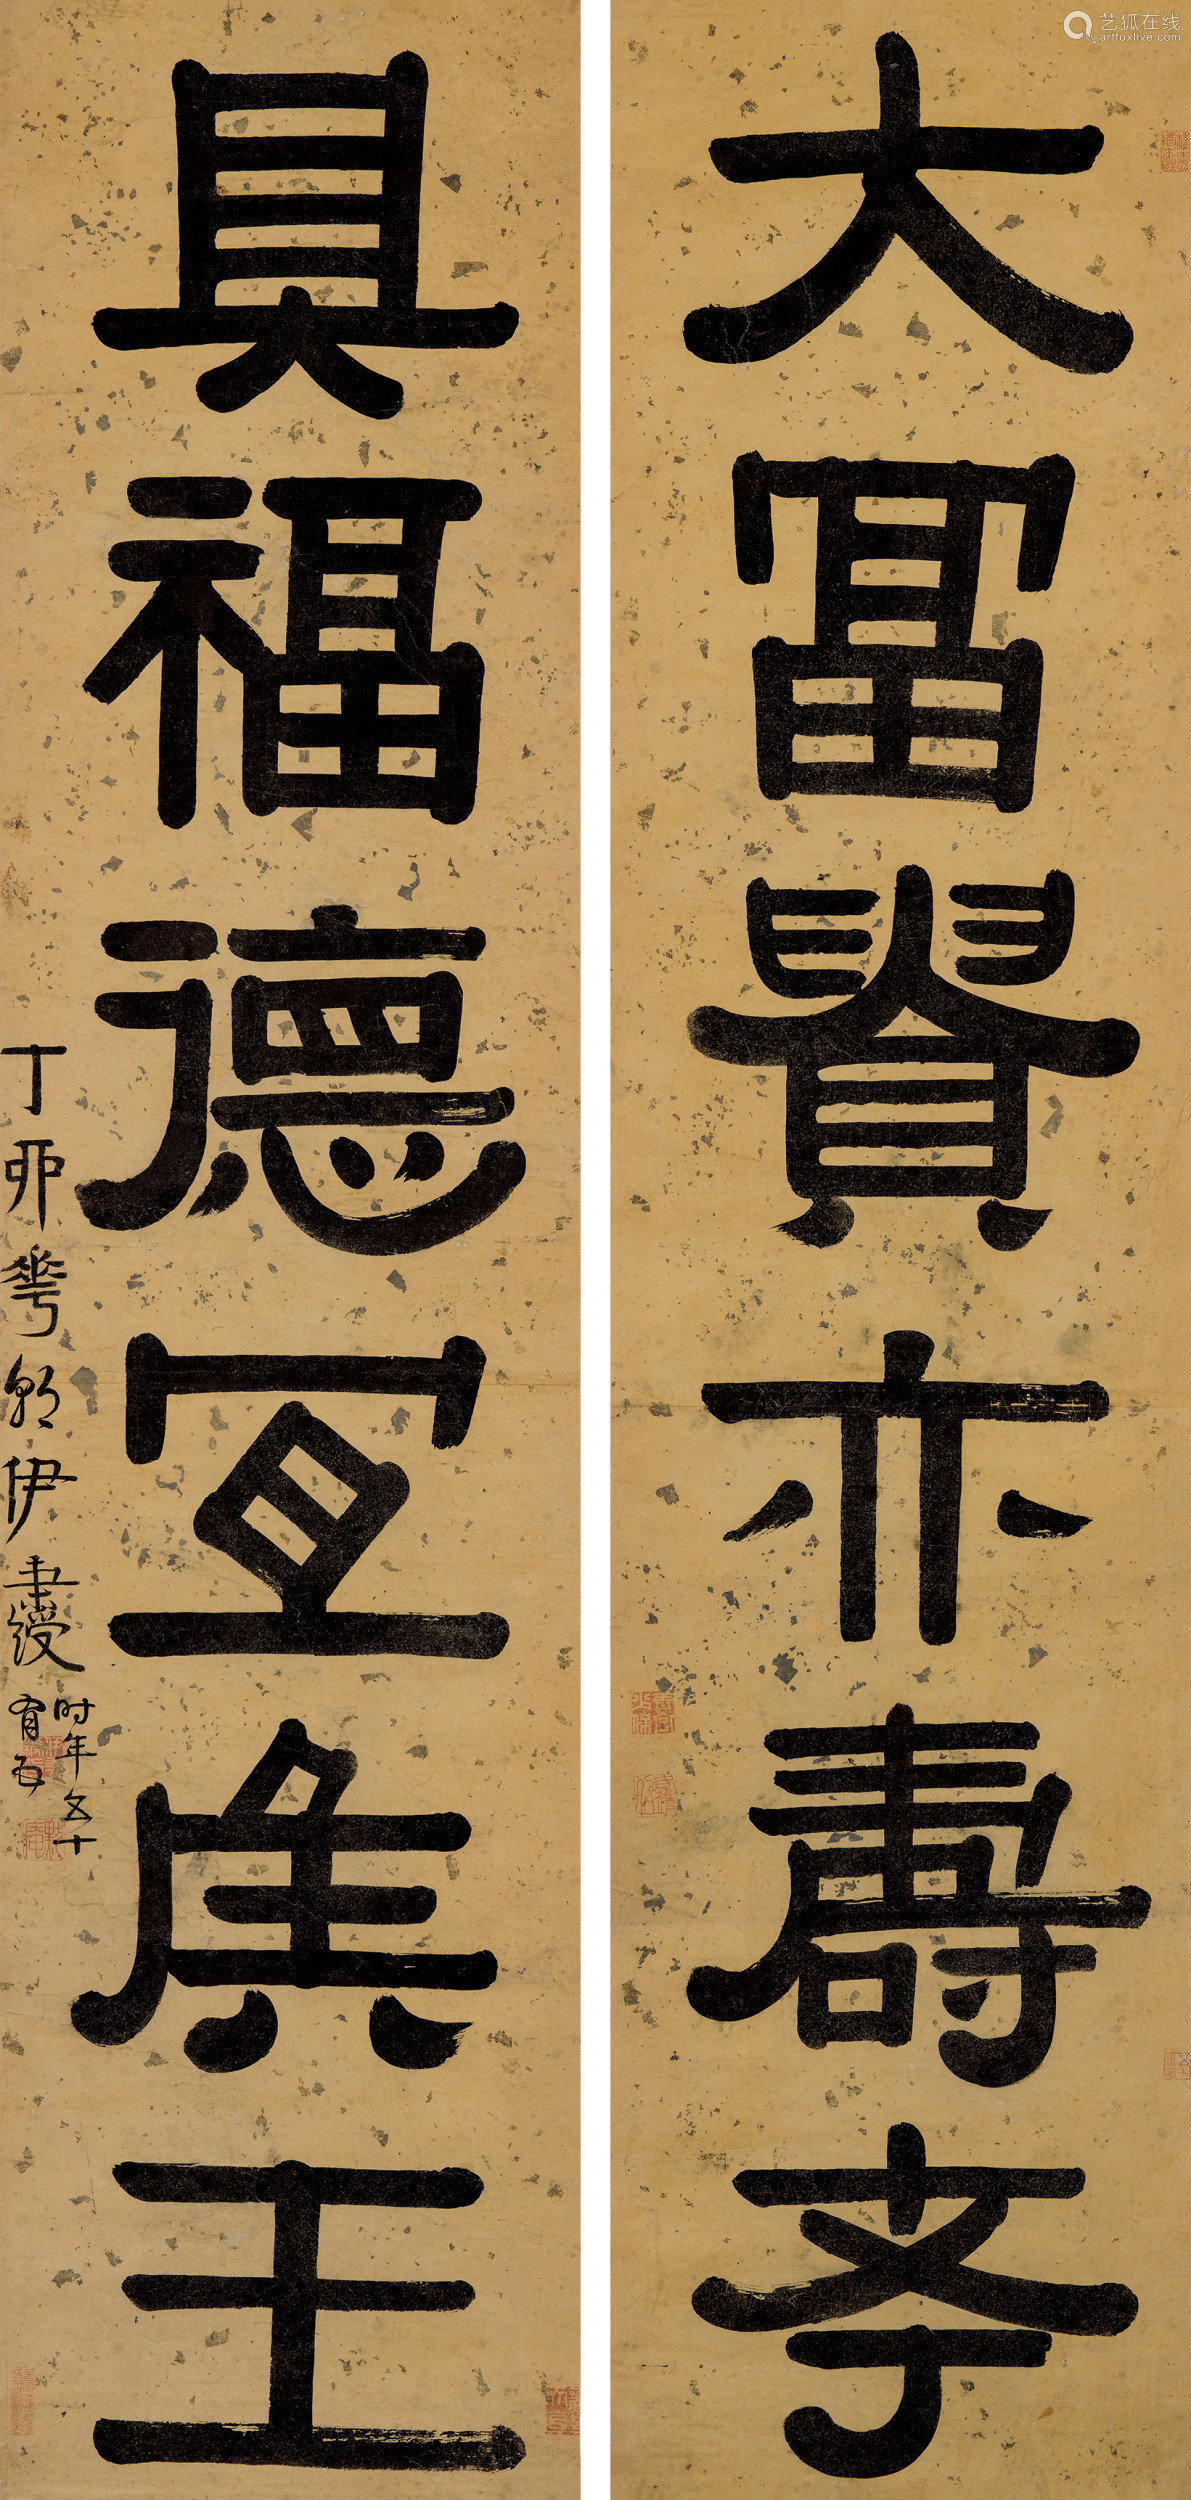 大富貴亦壽考
具福德宜侯王
丁卯花朝伊秉綬
時年五十
有五
艺狐在线
artfoxlive.com